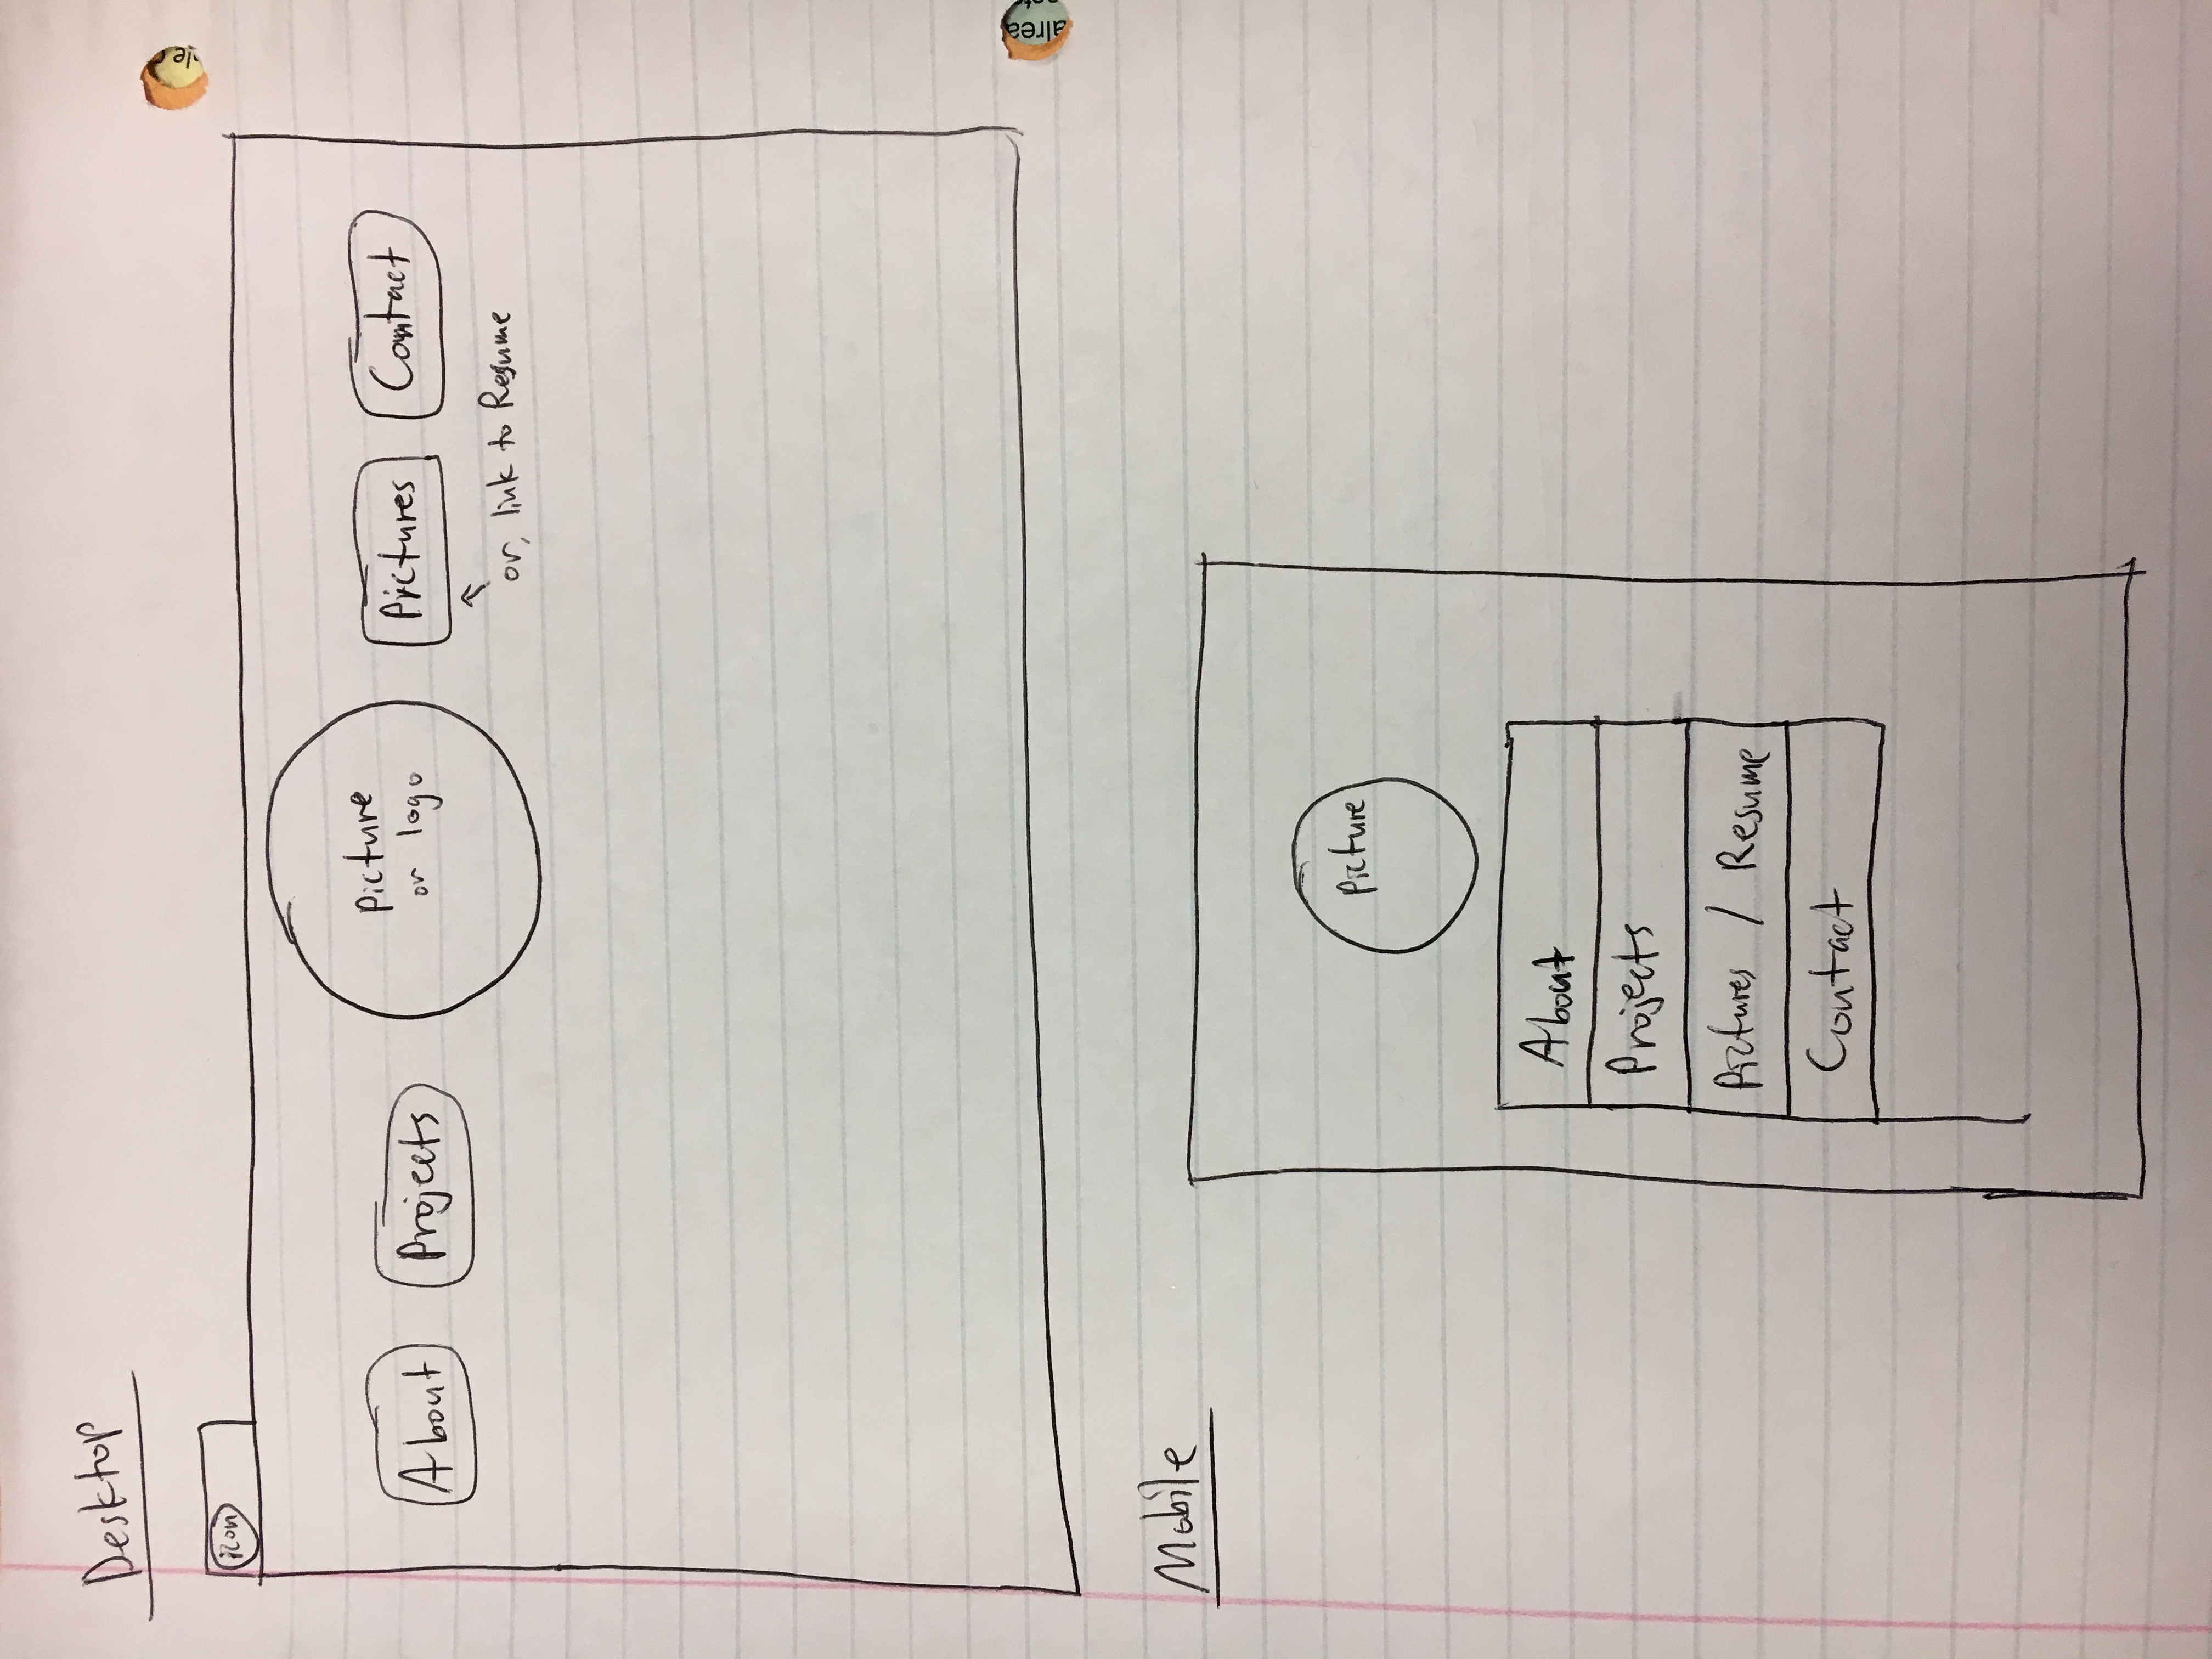 Desktop
icon
About
Projects
Picture
or logo
Pictures
Contact
or, link to Resume
Mobile
Picture
About
Projects
Pictures / Resume
Contact
le
alrea